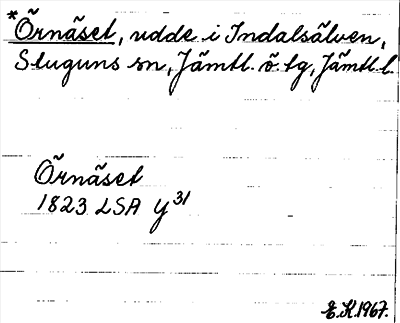 *Örnäset, udde i Indalsälven,
Stuguns sn, Jämtl. ö. tg, Jämtl. l.
Örnäset
1823 LSA Y 31
E.K. 1967.